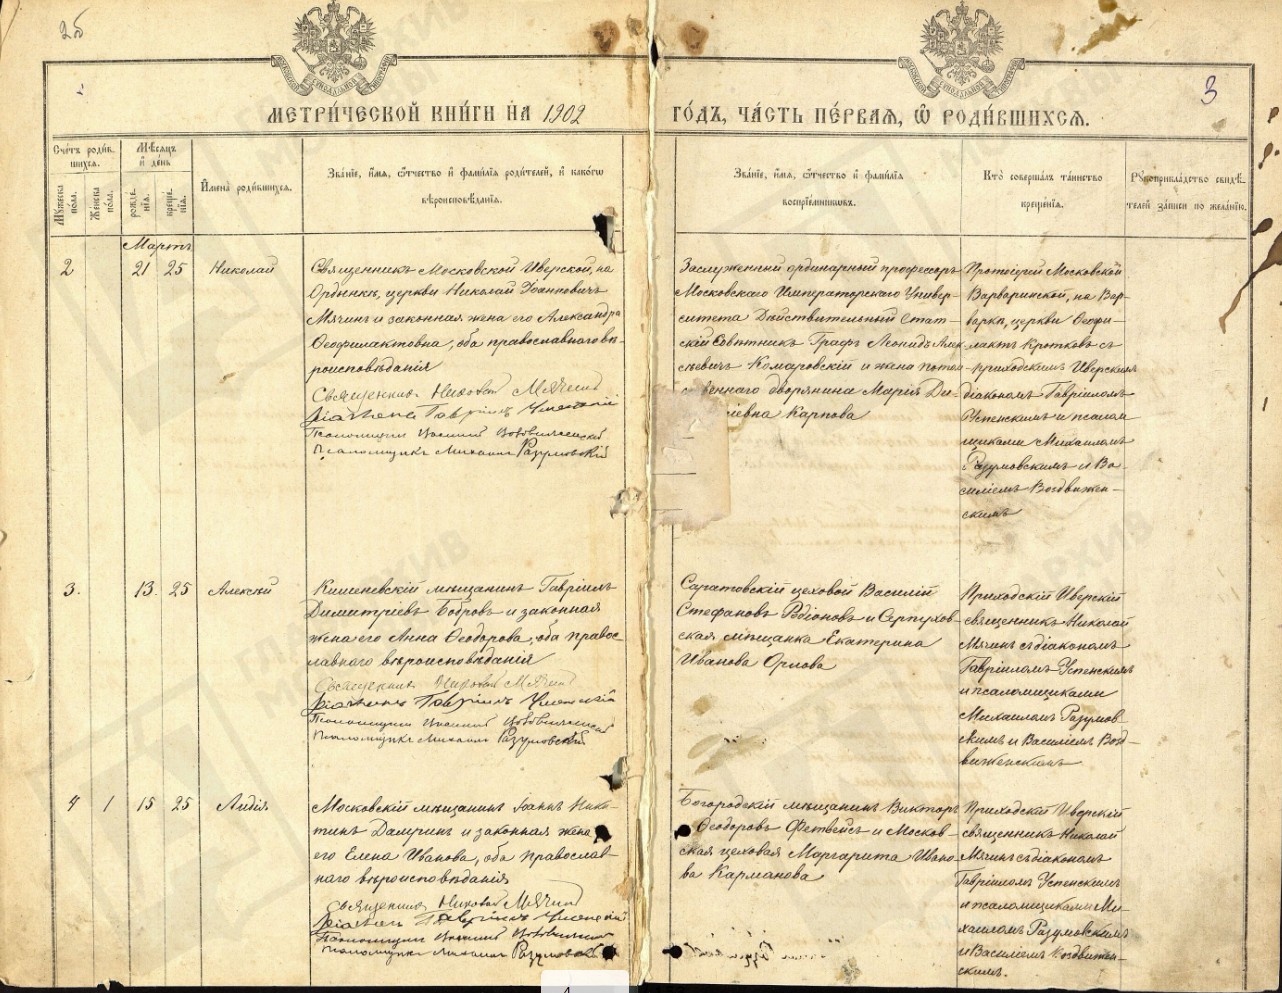 2б
МЕТРИ́ЧЕСКОЙ КНИ́ГИ НА 1902
ГО́ДЪ, ЧА́СТЬ ПЕ́РВАЯ, Ѡ҆ РОДИ́ВШИХСЯ.
3
Сче́тъ роди́в-
шихся.
Му́жеска
по́ла.
Же́нска
по́ла.
Мѣ́сяцъ
и҆ де́нь
рожде́-
нїя.
креще́-
нїя.
И҆мена̀ роди́вшихся.
Зва́нїе, и҆́мя, ѻ҆́тчество и҆ фами́лїя роди́телей, и҆ како́гѡ
вѣроисповѣ́данїя.
Зва́нїе, и҆́мя, ѻ҆́тчество и҆ фами́лїя
воспрїе́мниковъ.
Кто̀ соверша́лъ та́инство
креще́нїя.
Рꙋкоприкла́дство свидѣ́-
телей за́писи по жела́нїю.
Мартъ
2
21 25
Николай
Священникъ Московской Иверской, на
Ордынкѣ, церкви Николай Іоанновичъ
Мячинъ и законная жена его Александра
Ѳеофилактовна, оба православнаго вѣ-
роисповѣданія
Священникъ Николай Мячинъ
Діаконъ Гавріилъ Успенскій
Псаломщикъ Василій Воздвиженскій
Псаломщикъ Михаилъ Разумовскій
Заслуженный ординарный профессоръ
Московскаго Императорскаго Универ-
ситета Дѣйствительный Стат-
скій Совѣтникъ Графъ Леонидъ Алек-
сѣевичъ Комаровскій и жена потом-
ственнаго дворянина Марія
Карпова
Протоіерей Московской
Варваринской, на Вар-
варкѣ, церкви Ѳеофи-
лактъ Кротковъ съ
приходскимъ Иверскимъ
діакономъ Гавріиломъ
Успенскимъ и псалом-
щиками Михаиломъ
Разумовскимъ и Ва-
силіемъ Воздвижен-
скимъ
3.
13. 25
Алексѣй
Кишеневскій мѣщанинъ Гавріилъ
Димитріевъ Бобровъ и законная
жена его Анна Ѳеодорова, оба право-
славнаго вѣроисповѣданія
Священникъ Николай Мячинъ
Діаконъ Гавріилъ Успенскій
Псаломщикъ Василій Воздвиженскій
Псаломщикъ Михаилъ Разумовскій
Саратовскій цеховой Василій
Стефановъ Рдіоновъ и Серпухов-
ская мѣщанка Екатерина
Иванова Орлова
Приходскій Иверскій
священникъ Николай
Мячинъ съ діакономъ
Гавріиломъ Успенскимъ
и псаломщиками
Михаиломъ Разумов-
скимъ и Василіемъ Возд-
виженскимъ
4 1
15 25
Лидія
Московскій мѣщанинъ Іоаннъ Ники-
тинъ Дамринъ и законная жена
его Елена Иванова, оба православ-
наго вѣроисповѣданія
Священникъ Николай Мячинъ
Діаконъ Гавріилъ Успенскій
Псаломщикъ Василій Воздвиженскій
Псаломщикъ Михаилъ Разумовскій
Богородскій мѣщанинъ Викторъ
Ѳеодоровъ Фетвейсъ и Москов-
ская цеховая Маргарита Ивано-
ва Карманова
Приходскій Иверскій
священникъ Николай
Мячинъ съ діакономъ
Гавріиломъ Успенскимъ
и псаломщиками Ми-
хаиломъ Разумовскимъ
и Василіемъ Воздвижен-
скимъ.